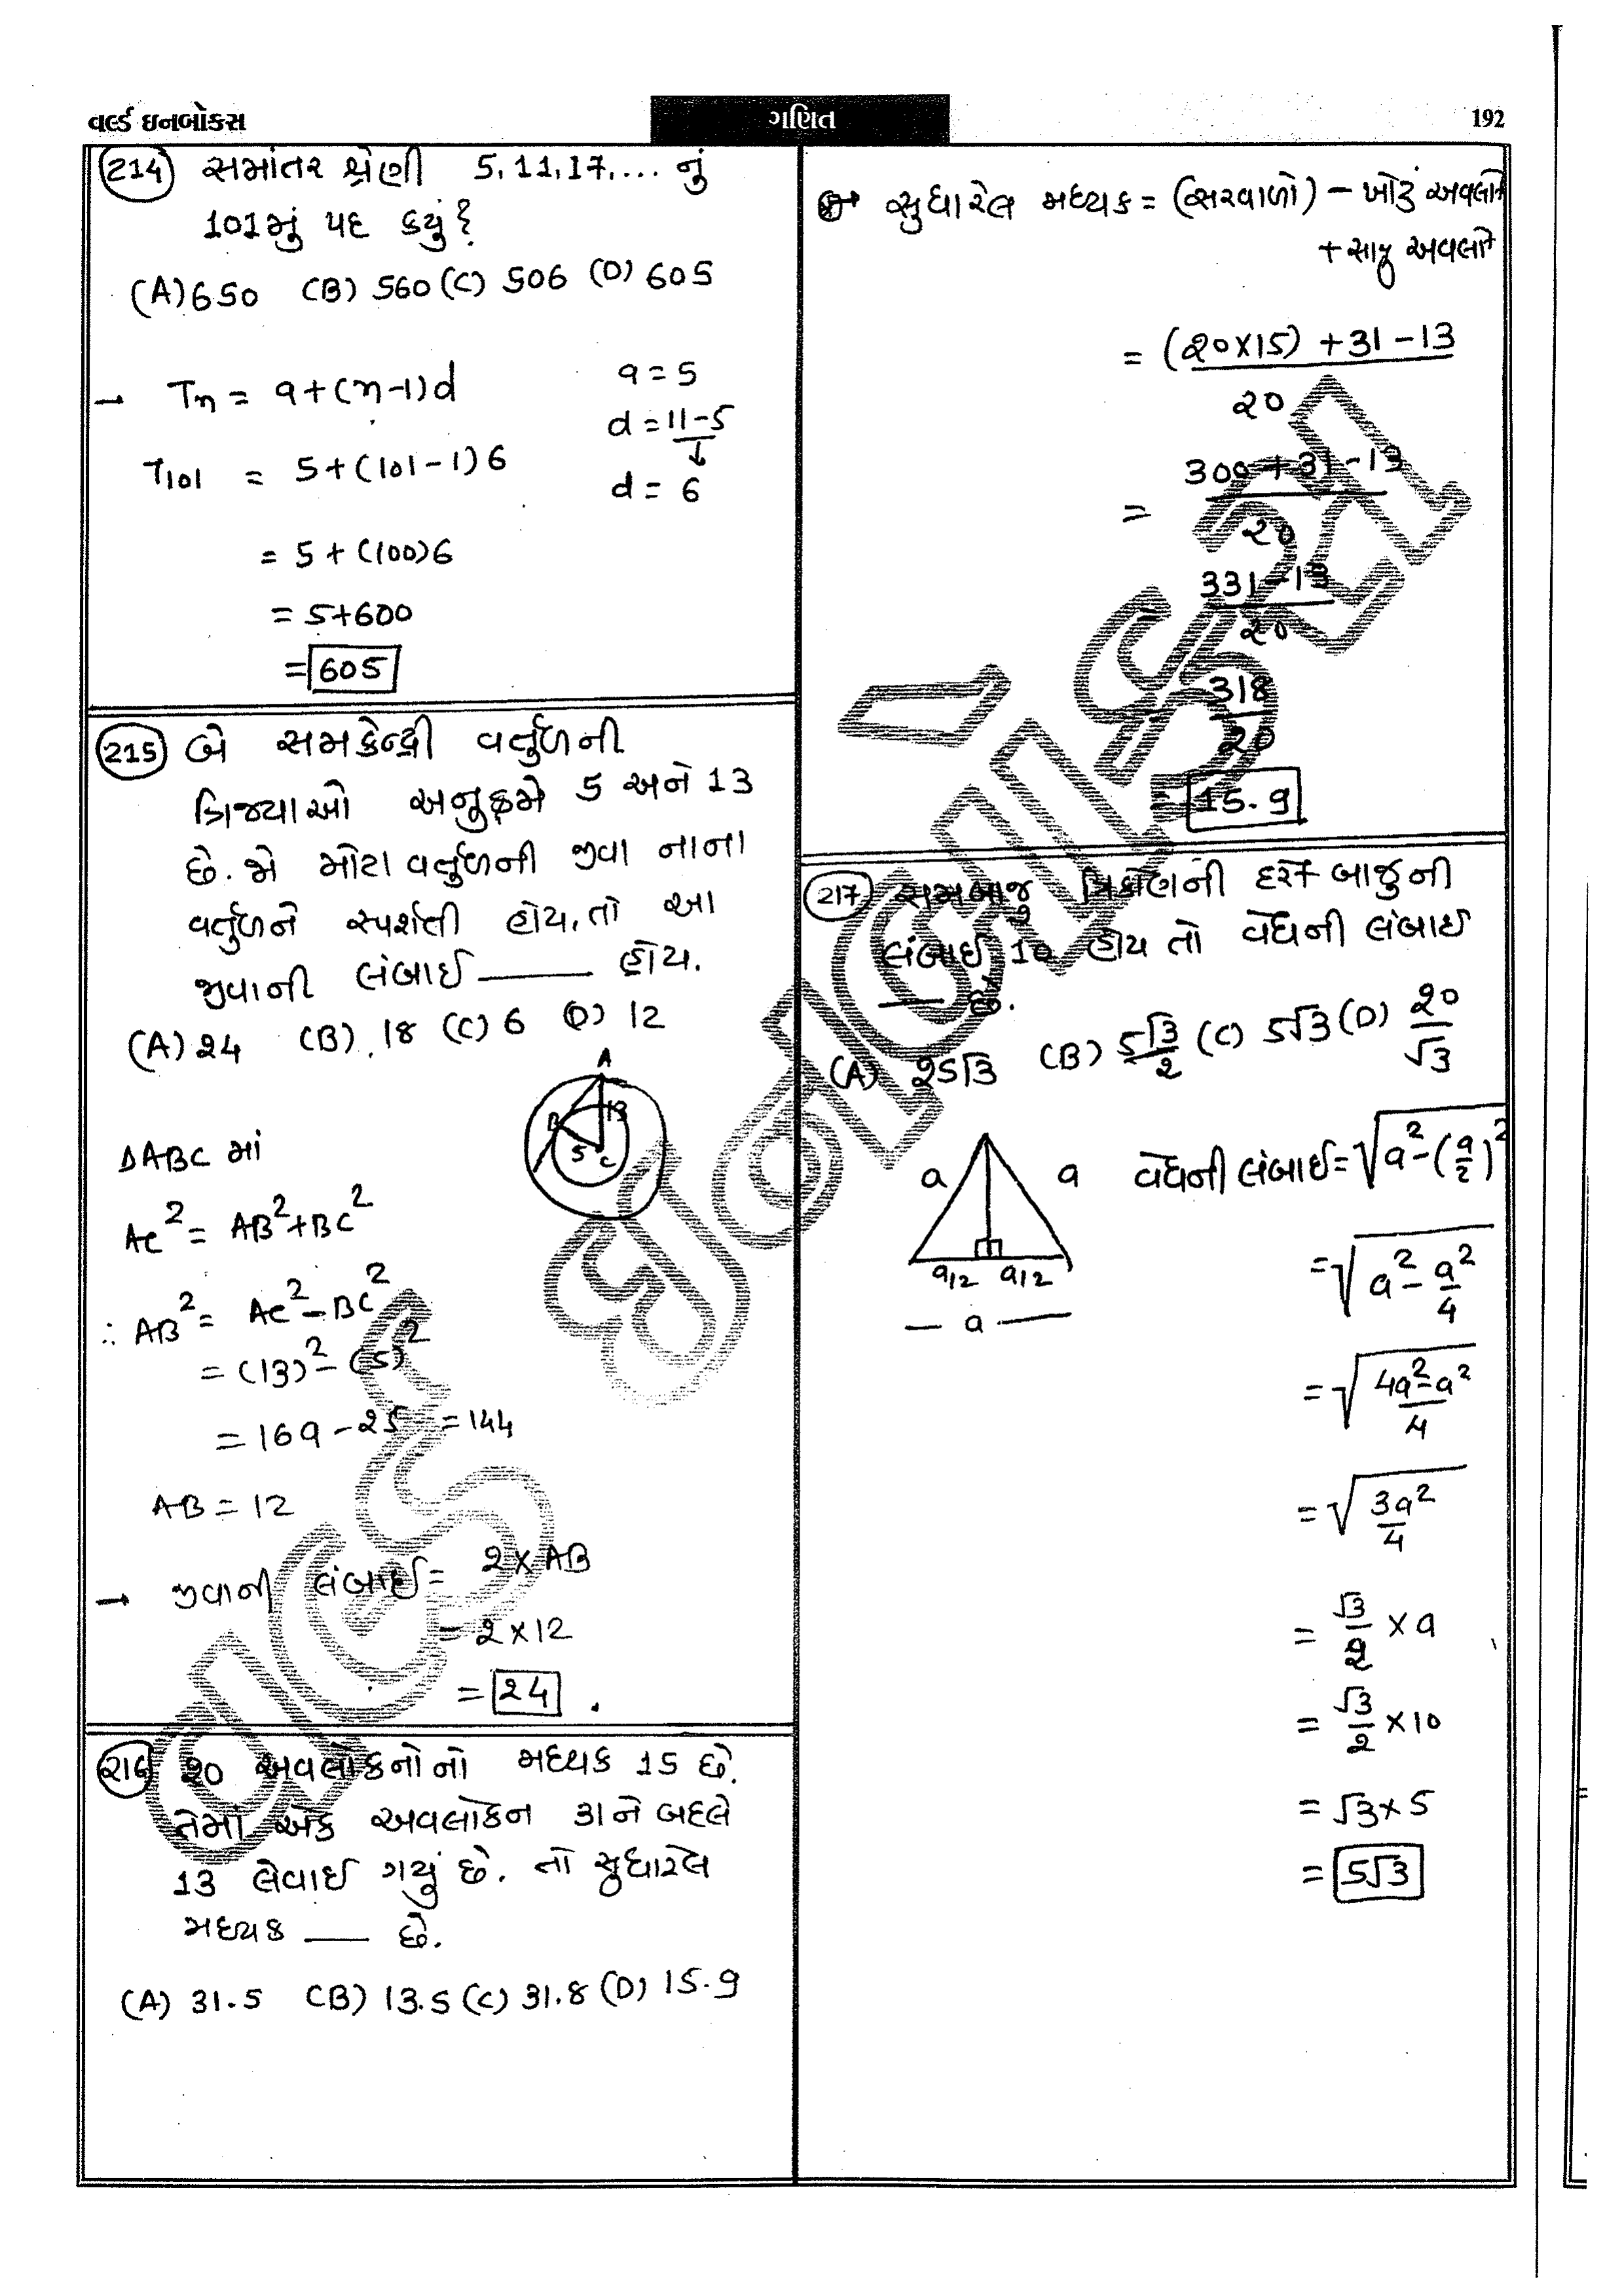 વર્લ્ડ ઇનબોક્સ
ગણિત
192
214 સમાંતર શ્રેણી 5, 11, 17, ... નું
101મું પદ કયું?
(A) 650 (B) 560 (C) 506 (D) 605
→ Tn = a+(n-1)d
a = 5
d = 11-5
T101 = 5+(101-1)6
d = 6
= 5+(100)6
= 5+600
= 605
215 બે સમકેન્દ્રી વર્તુળની
ત્રિજ્યાઓ અનુક્રમે 5 અને 13
છે. જો મોટા વર્તુળની જીવા નાના
વર્તુળને સ્પર્શતી હોય, તો આ
જીવાની લંબાઈ ____ હોય.
(A) 24 (B) 18 (C) 6 (D) 12
A
13
B
5 C
ΔABC માં
AC² = AB²+BC²
∴ AB² = AC²-BC²
= (13)²-(5)²
= 169-25 = 144
AB = 12
→ જીવાની લંબાઈ = 2×AB
= 2×12
= 24.
216 20 અવલોકનોનો મધ્યક 15 છે.
તેમાં એક અવલોકન 31ને બદલે
13 લેવાઈ ગયું છે. તો સુધારેલ
મધ્યક ___ છે.
(A) 31.5 (B) 13.5 (C) 31.8 (D) 15.9
સુધારેલ મધ્યક = (સરવાળો) - ખોટું અવલો
+ સાચુ અવલો
= (20×15)+31-13
20
= 300+31-13
20
331-13
20
318
20
= 15.9
217 સમબાજુ ત્રિકોણની દરેક બાજુની
લંબાઈ 10 હોય તો વેધની લંબાઈ
___ છે.
(A) 25√3 (B) 5√3/2 (C) 5√3 (D) 20/√3
a a
a/2 a/2
— a —
વેધની લંબાઈ = √a²-(a/2)²
= √a²-a²/4
= √4a²-a²/4
= √3a²/4
= √3/2 × a
= √3/2 × 10
= √3×5
= 5√3